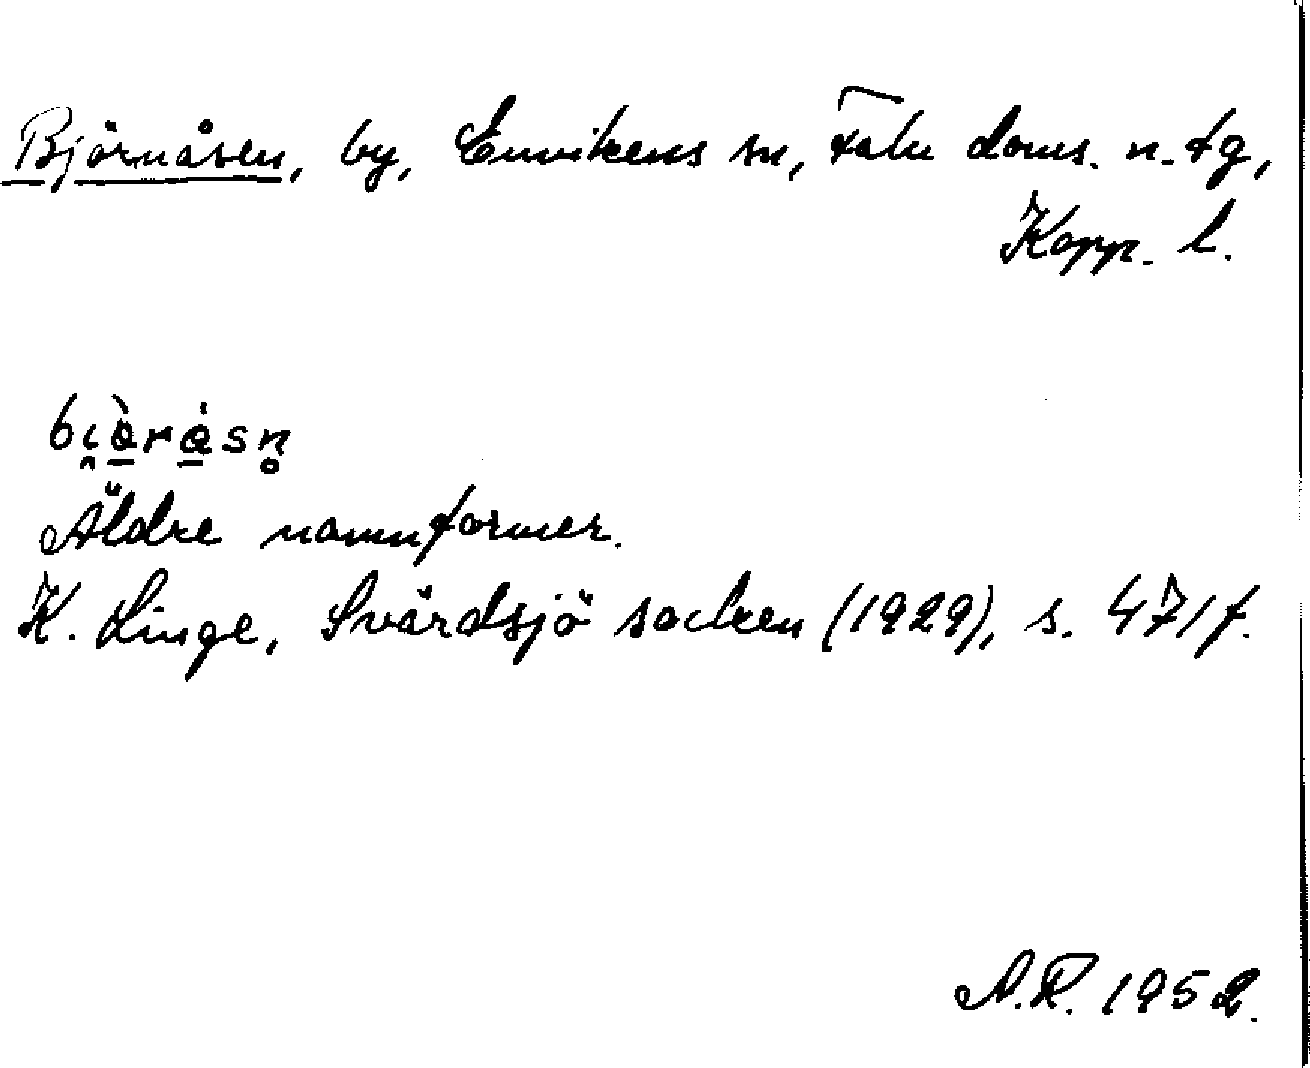 Björnåsen, by, Envikens sn, Falu doms. n. tg,
Kopp. l.
bi̯å̠̀rǻ̠sn̥
Äldre namnformer.
K. Linge, Svärdsjö socken (1929), s. 471 f.
A.R. 1952.